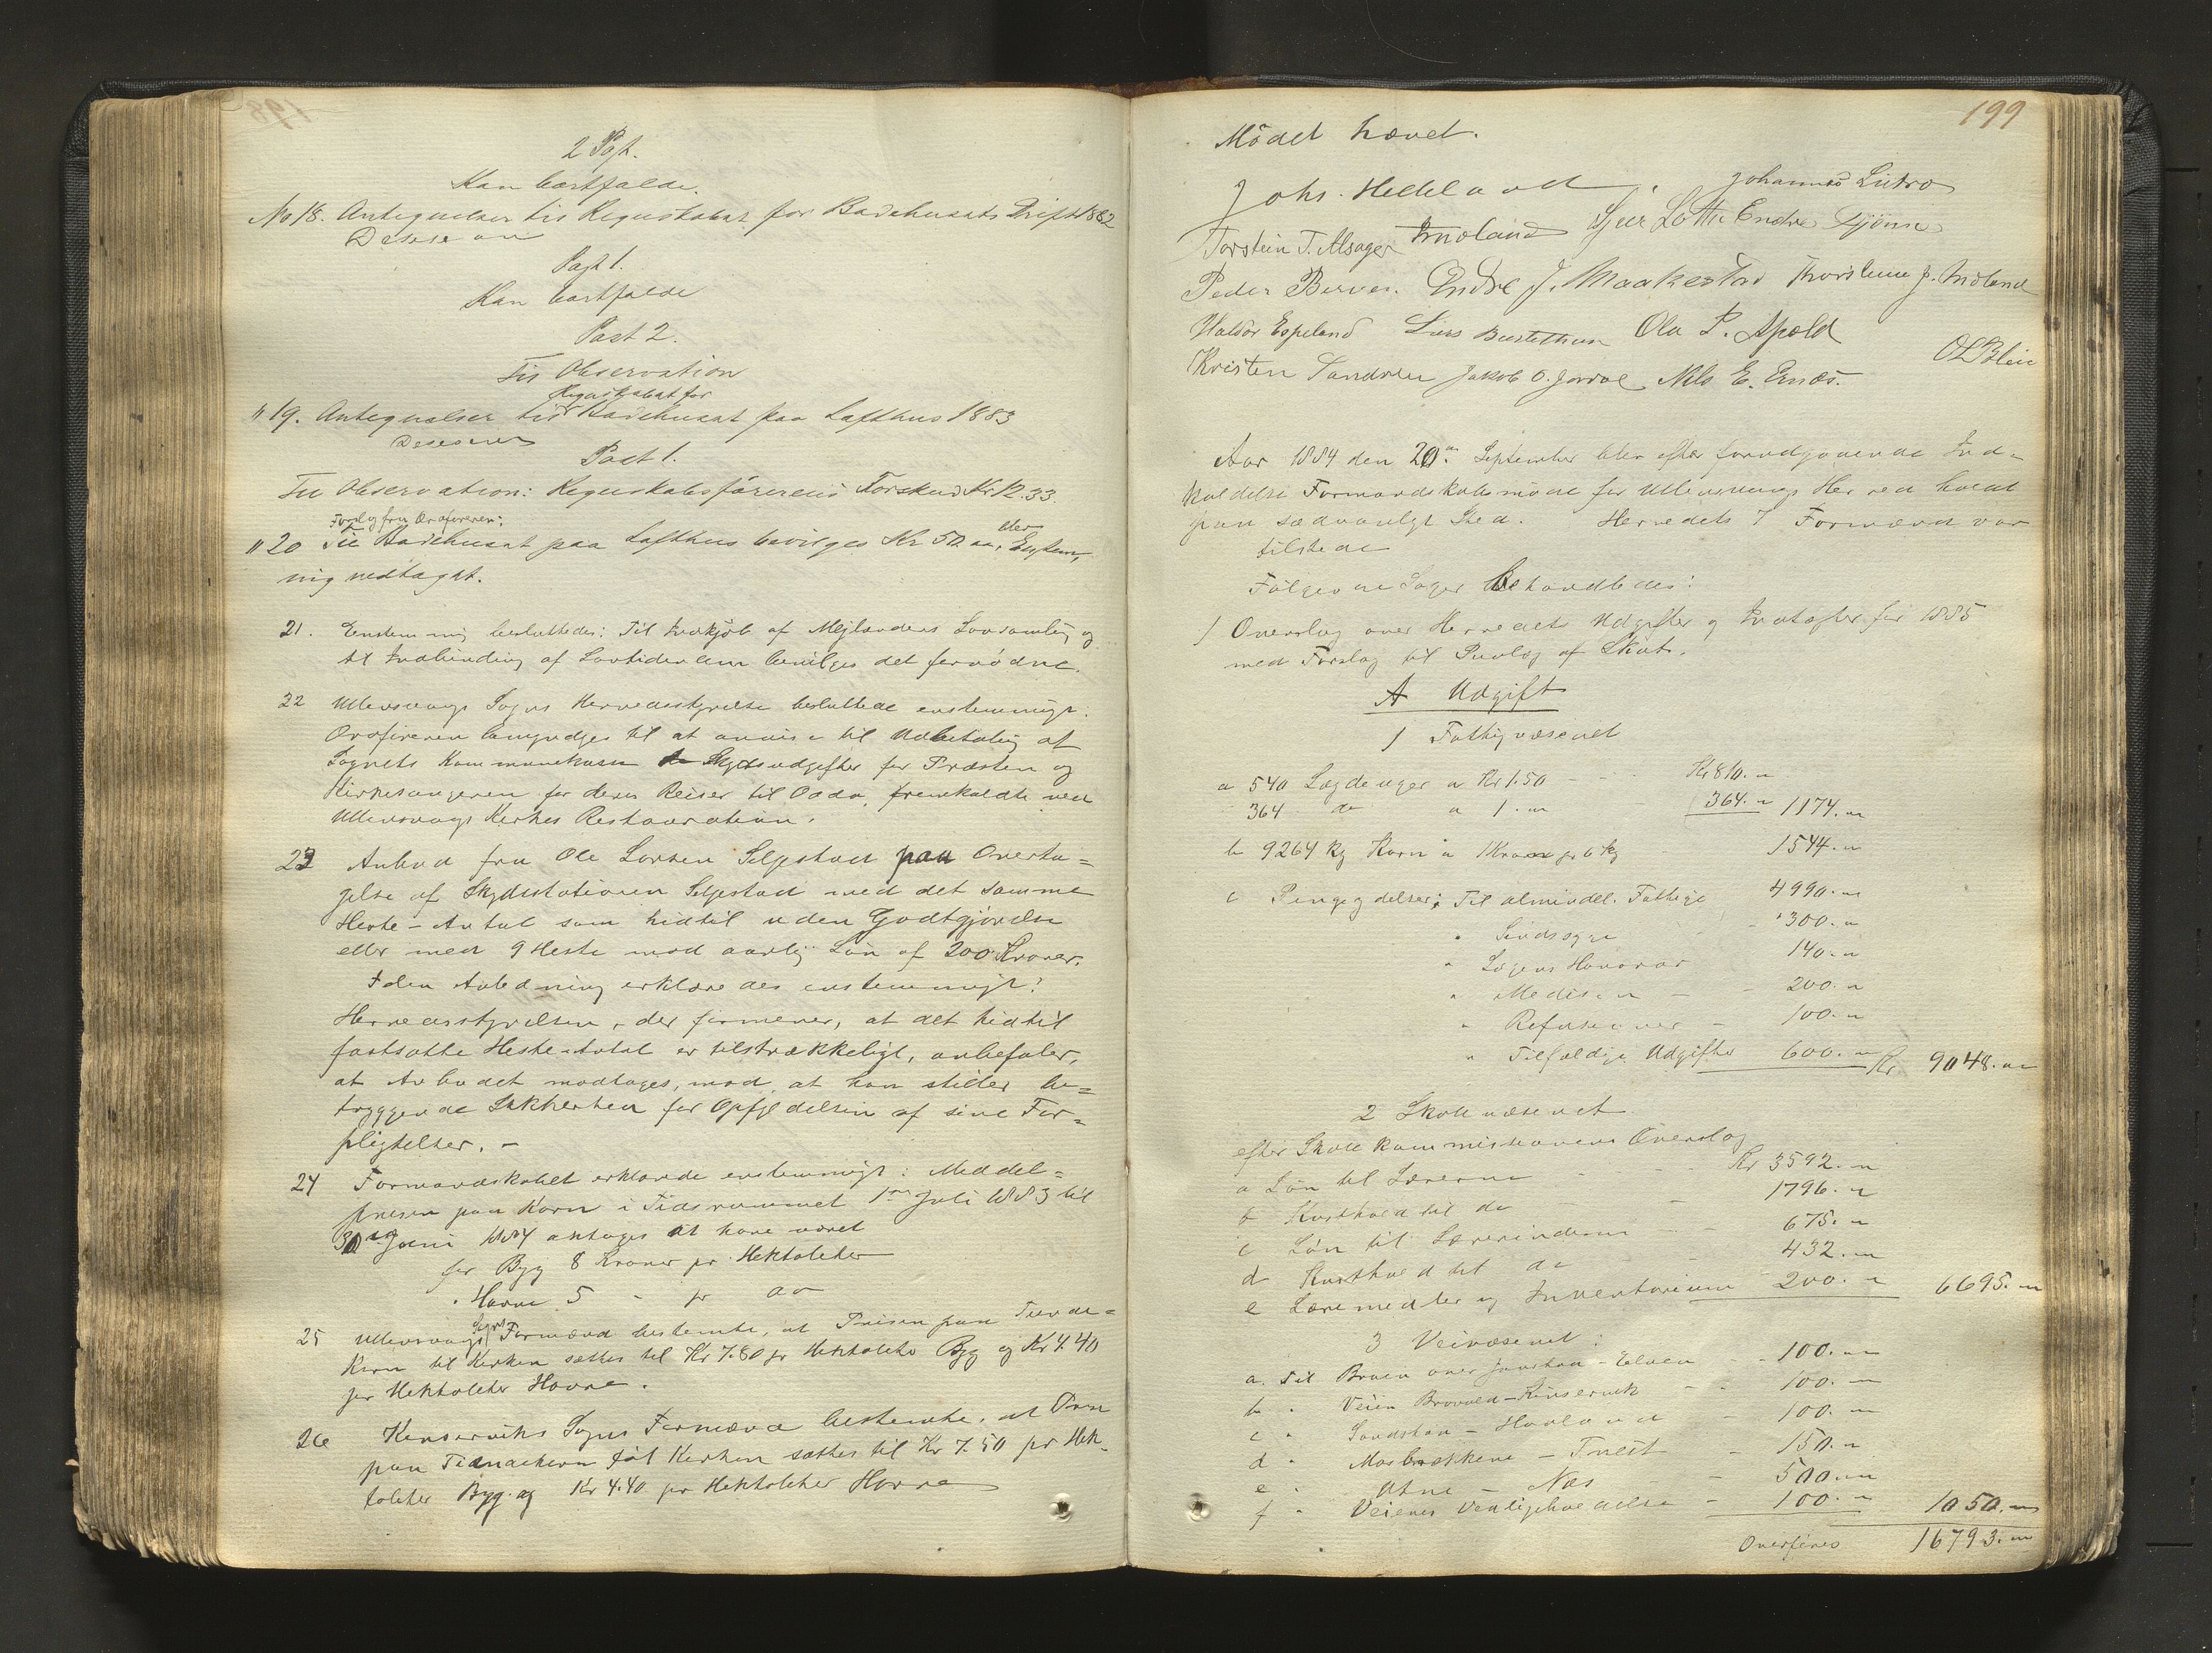 2 Post.
Kan bortfalde.
No 18. Antegnelser til Regnskabet for Badehusets Drift 1882
Desision
Post 1.
Kan bortfalde
Post 2.
Til Observation
" 19. Antegnelser til Regnskabet for Badehuset paa Lofthus 1883
Desision
Post 1.
Til Observation: Regnskabsførerens Forskud Kr 12.33.
Forslag fra Ordføreren:
" 20 Til Badehuset paa Lofthus bevilges Kr 50 ,,, blev Enstem-
mig vedtaget.
21. Enstemmig besluttedes: Til Indkjøb af Mejlænders Lovsamling og
til Indbinding af Lovtidenden bevilges det fornødne.
22 Ullensvangs Sogns Herredsstyrelse besluttede enstemmigt:
Ordføreren bemyndiges til at anvise til Udbetaling af
Sognets Kommunekasse Skydsudgifter for Præsten og
Kirkesangeren for deres Reiser til Odda, fremkaldte ved
Ullensvangs Kirkes Restauration.
23 Anbud fra Ole Larsen Seljestad paa Overta=
gelse af Skydsstationen Seljestad med det samme
Heste-Antal som hidtil uden Godtgjørelse
eller med 9 Heste mod aarlig Løn af 200 Kroner.
I den Anledning erklæredes enstemmigt:
Herredsstyrelsen, der formener, at det hidtil
fastsatte Hesteantal er tilstrækkeligt, anbefaler,
at Anbudet modtages, mod at han stiller be=
tryggende Sikkerhed for Opfyldelsen af sine For=
pligtelser. -
24 Formandskabet erklærede enstemmigt: Middel=
prisen paa Korn i Tidsrummet 1ste Juli 1883 til
30te Juni 1884 antages at have været
for Byg 8 Kroner pr. Hektoliter
" Havre 5 - pr do
25 Ullensvangs Sogns Formænd bestemte, at Prisen paa Tiende=
korn til Kirken sættes til Kr 7.80 pr Hektoliter Byg og Kr 4.40
pr Hektoliter Havre.
26 Kinserviks Sogns Formænd bestemte, at Prisen
paa Tiendekorn til Kirken sættes til Kr 7.50 pr Hek-
toliter Byg og Kr 4.40 pr Hektoliter Havre
199
Mödet hævet.
Johs. Helleland. Johannes Lutro
Torstein T. Alsager Indland Sjur Lothe Endre Djönne
Peder Berven. Endre J. Maakestad Thorstein J. Indland
Haldor Espeland Lars Bustethun Ola P. Apold
Kristen Sandven Jakob O. Jordal Nils E. Ernæs. O L Blie
Aar 1884 den 20de September blev efter forudgaaende Ind-
kaldelse Formandskabsmøde for Ullensvangs Herred holdt
paa sædvanligt Sted. Herredets 7 Formænd var
tilstede
Følgende Sager behandledes:
1 Overslag over Herredets Udgifter og Indtægter for 1885
med Forslag til Paalæg af Skat.
A Udgift
1 Fattigvæsenet
a 540 Lægdeuger a Kr 1.50 - - - Kr 810. "
364 do a 1. " 364. " 1174. "
b 9264 Kg Korn a 1 Krone pr 6 Kg 1544. "
c Pengeydelser: Til almindel. Fattige 4990. "
" Sindssyge - 300. "
" Lægens Honorar 140. "
" Medisin - - 200. "
" Refusioner - 100. "
" Tilfældige Udgifter 600. " Kr 9048. "
2 Skolevæsenet
efter Skolekommissionens Overslag
a Løn til Lærerne - - Kr 3592. "
b Kosthold til do - 1796. "
c Løn til Lærerinderne - - 675. "
d Kosthold til do - 432. "
e Læremidler og Inventarium - 200. " 6695. "
3 Veivæsenet:
a. Til Broen over Jonstan-Elven - - 100. "
b " Veien Brovold-Kinservik - - 100. "
c " Sandstan - Hovland - 100. "
d " Mosbrækkene - Tveit - 150. "
e " Utne - Næs - - 500. "
f " Veienes Vedligeholdelse - 100. " 1050. "
Overføres 16793. "